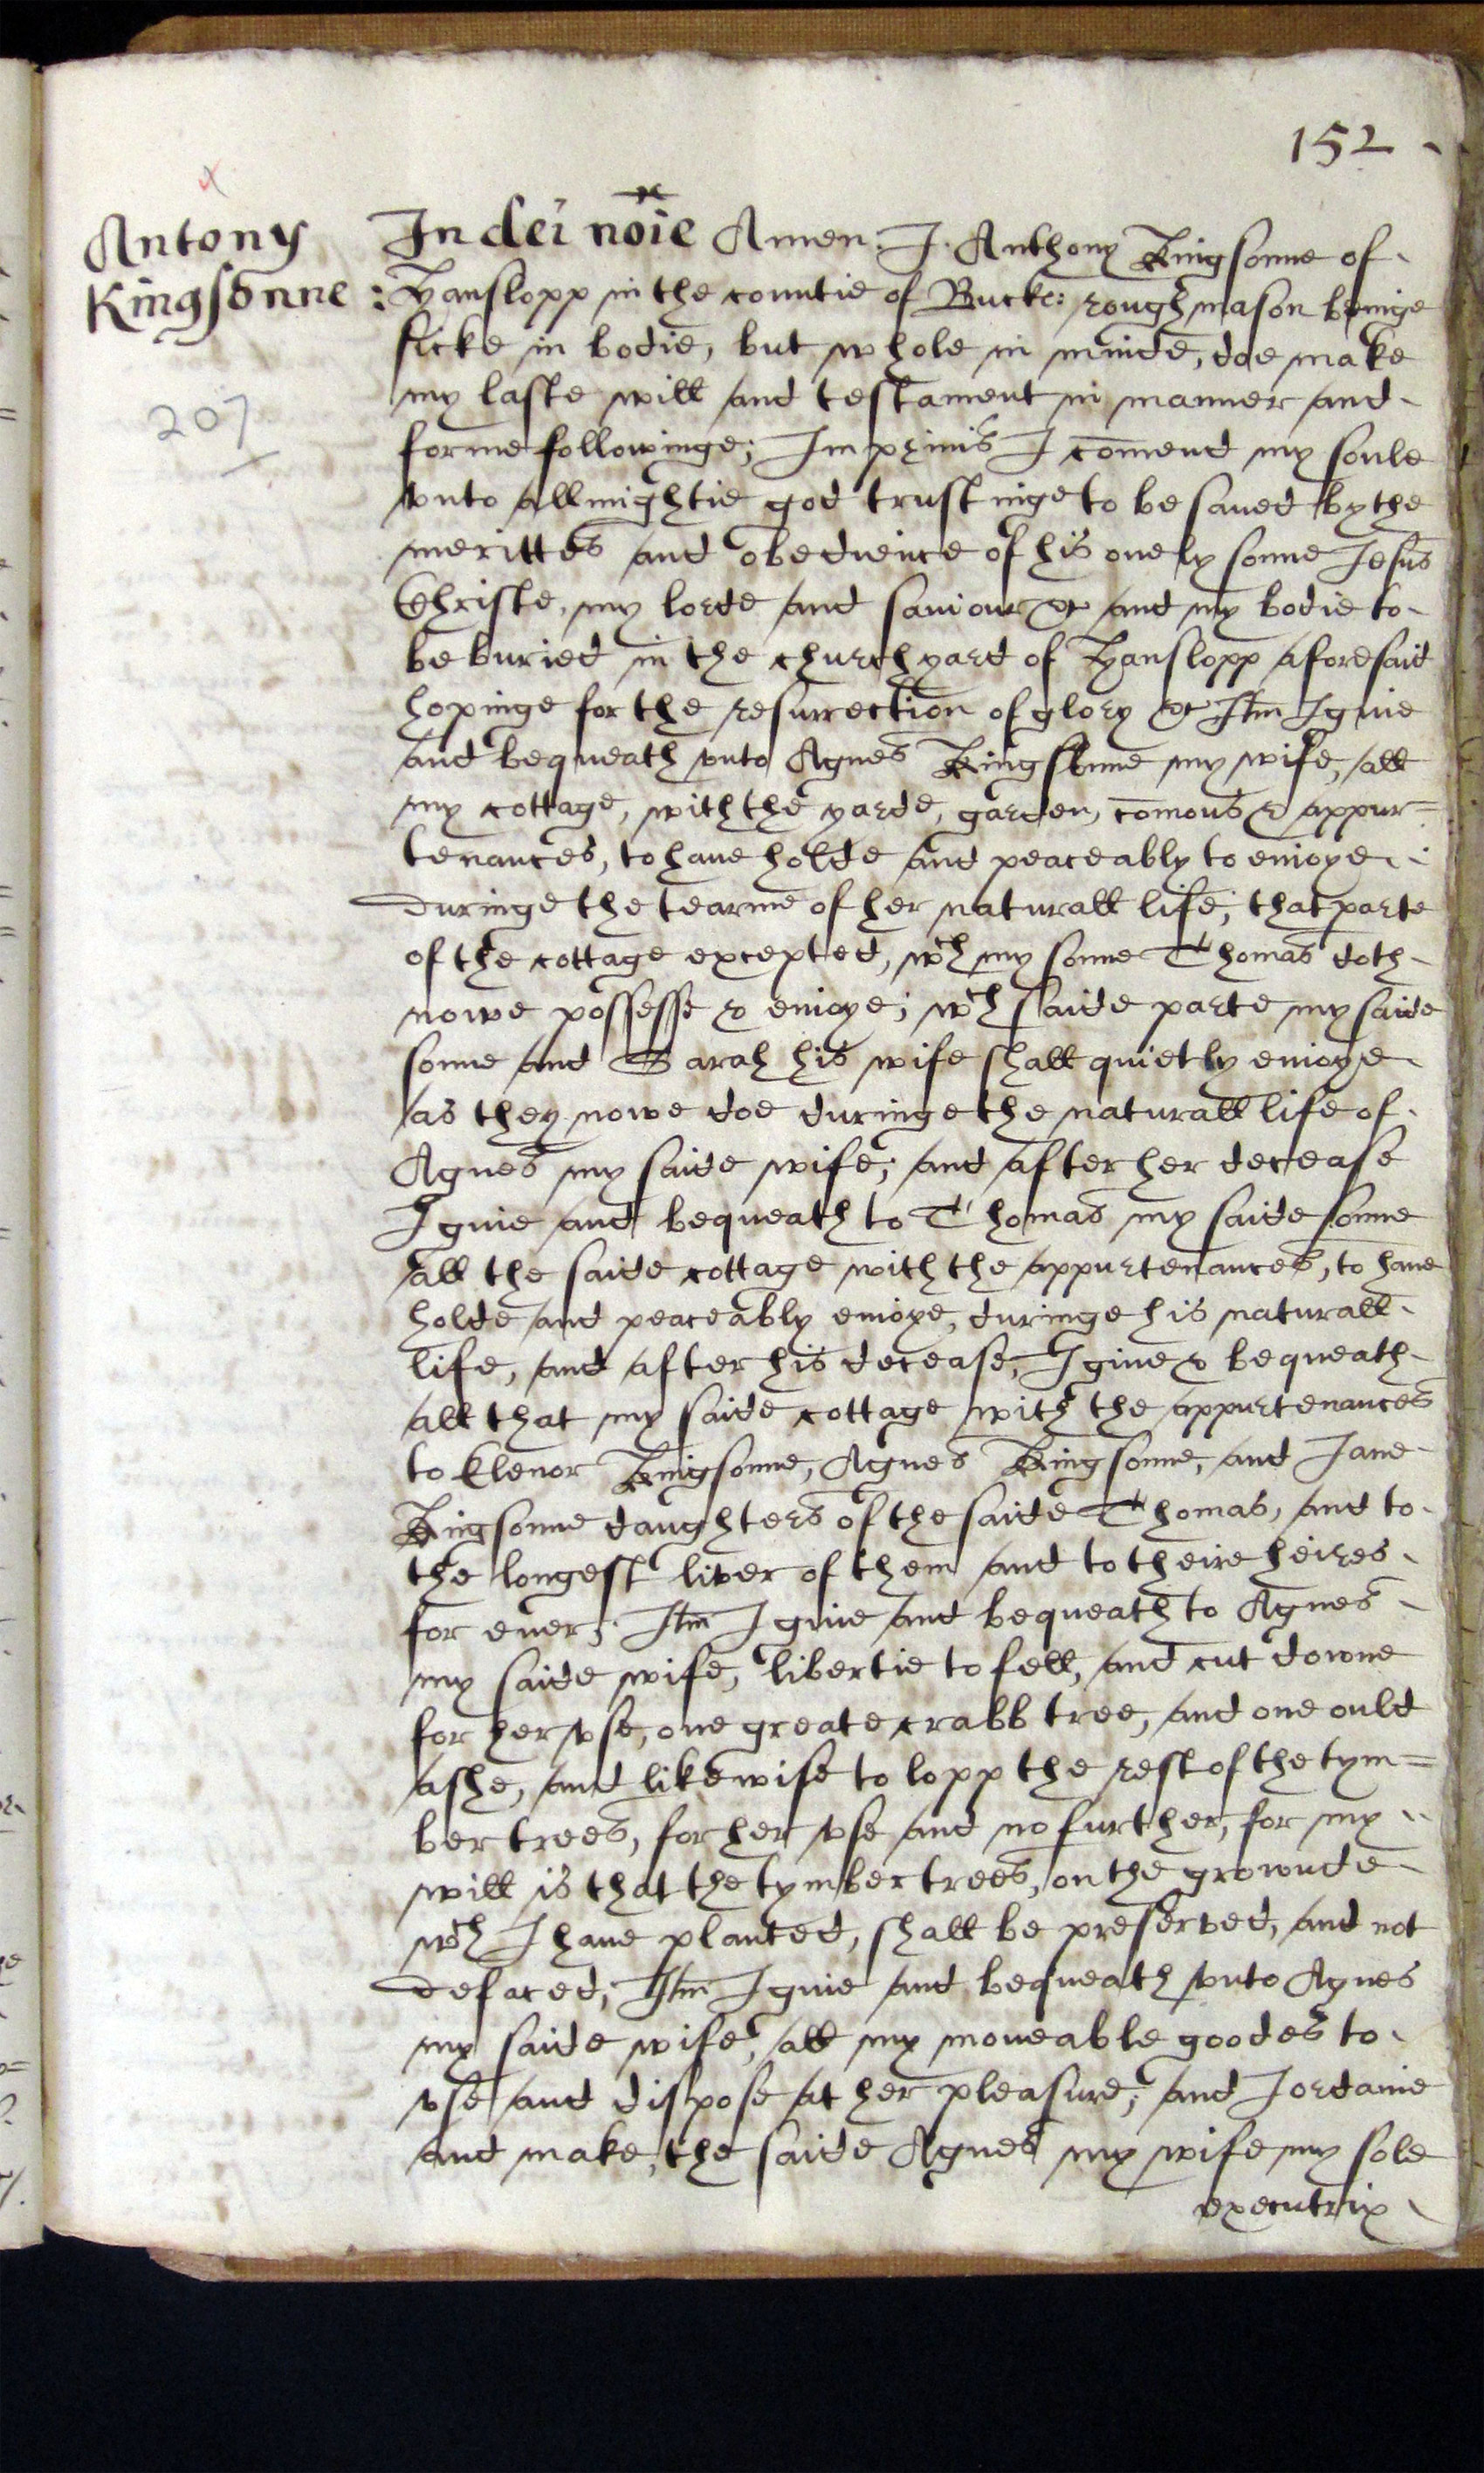 152
Antony
Kingsonne :
207
In dei noie Amen. I. Anthony Kingsonne of
Hanslopp in the countie of Bucks: rough mason beinge
sicke in bodie, but whole in minde, doe make
my laste will and testament in manner and
forme followinge; Imprimis I comend my soule
vnto allmightie god trustinge to be saued by the
merittes and obedience of his onely sonne Jesus
Christe, my lorde and saviour &c and my bodie to
be buried in the churchyard of Hanslopp aforesaid
hopinge for the resurrection of glory &c Itm I giue
and bequeath vnto Agnes Kingsonne my wife, all
my cottage, with the yarde, garden, comons & appur=
tenances, to haue holde and peaceably to enioye
duringe the tearme of her naturall life; that parte
of the cottage excepted, wch my sonne Thomas doth
nowe possesse & enioye; wch saide parte my saide
sonne and Sarah his wife shall quietly enioye
as they nowe doe duringe the naturall life of
Agnes my saide wife; and after her decease
I giue and bequeath to Thomas my saide sonne
all the saide cottage with the appurtenances, to haue
holde and peaceably enioye, duringe his naturall
life, and after his decease, I giue & bequeath
all that my saide cottage with the appurtenances
to Elenor Kingsonne, Agnes Kingsonne, and Jane
Kingsonne daughters of the saide Thomas, and to
the longest liver of them and to theire heires
for euer; Itm I giue and bequeath to Agnes
my saide wife, libertie to fell, and cut downe
for her vse, one greate crabb tree, and one ould
ashe, and likewise to lopp the rest of the tym=
ber trees, for her vse and no further, for my
will is that the tymber trees, on the grownde
wch I haue planted, shall be preserved, and not
defaced; Itm I giue and bequeath vnto Agnes
my saide wife, all my moueable goodes to
vse and dispose at her pleasure; and I ordaine
and make, the saide Agnes my wife my sole
executrix